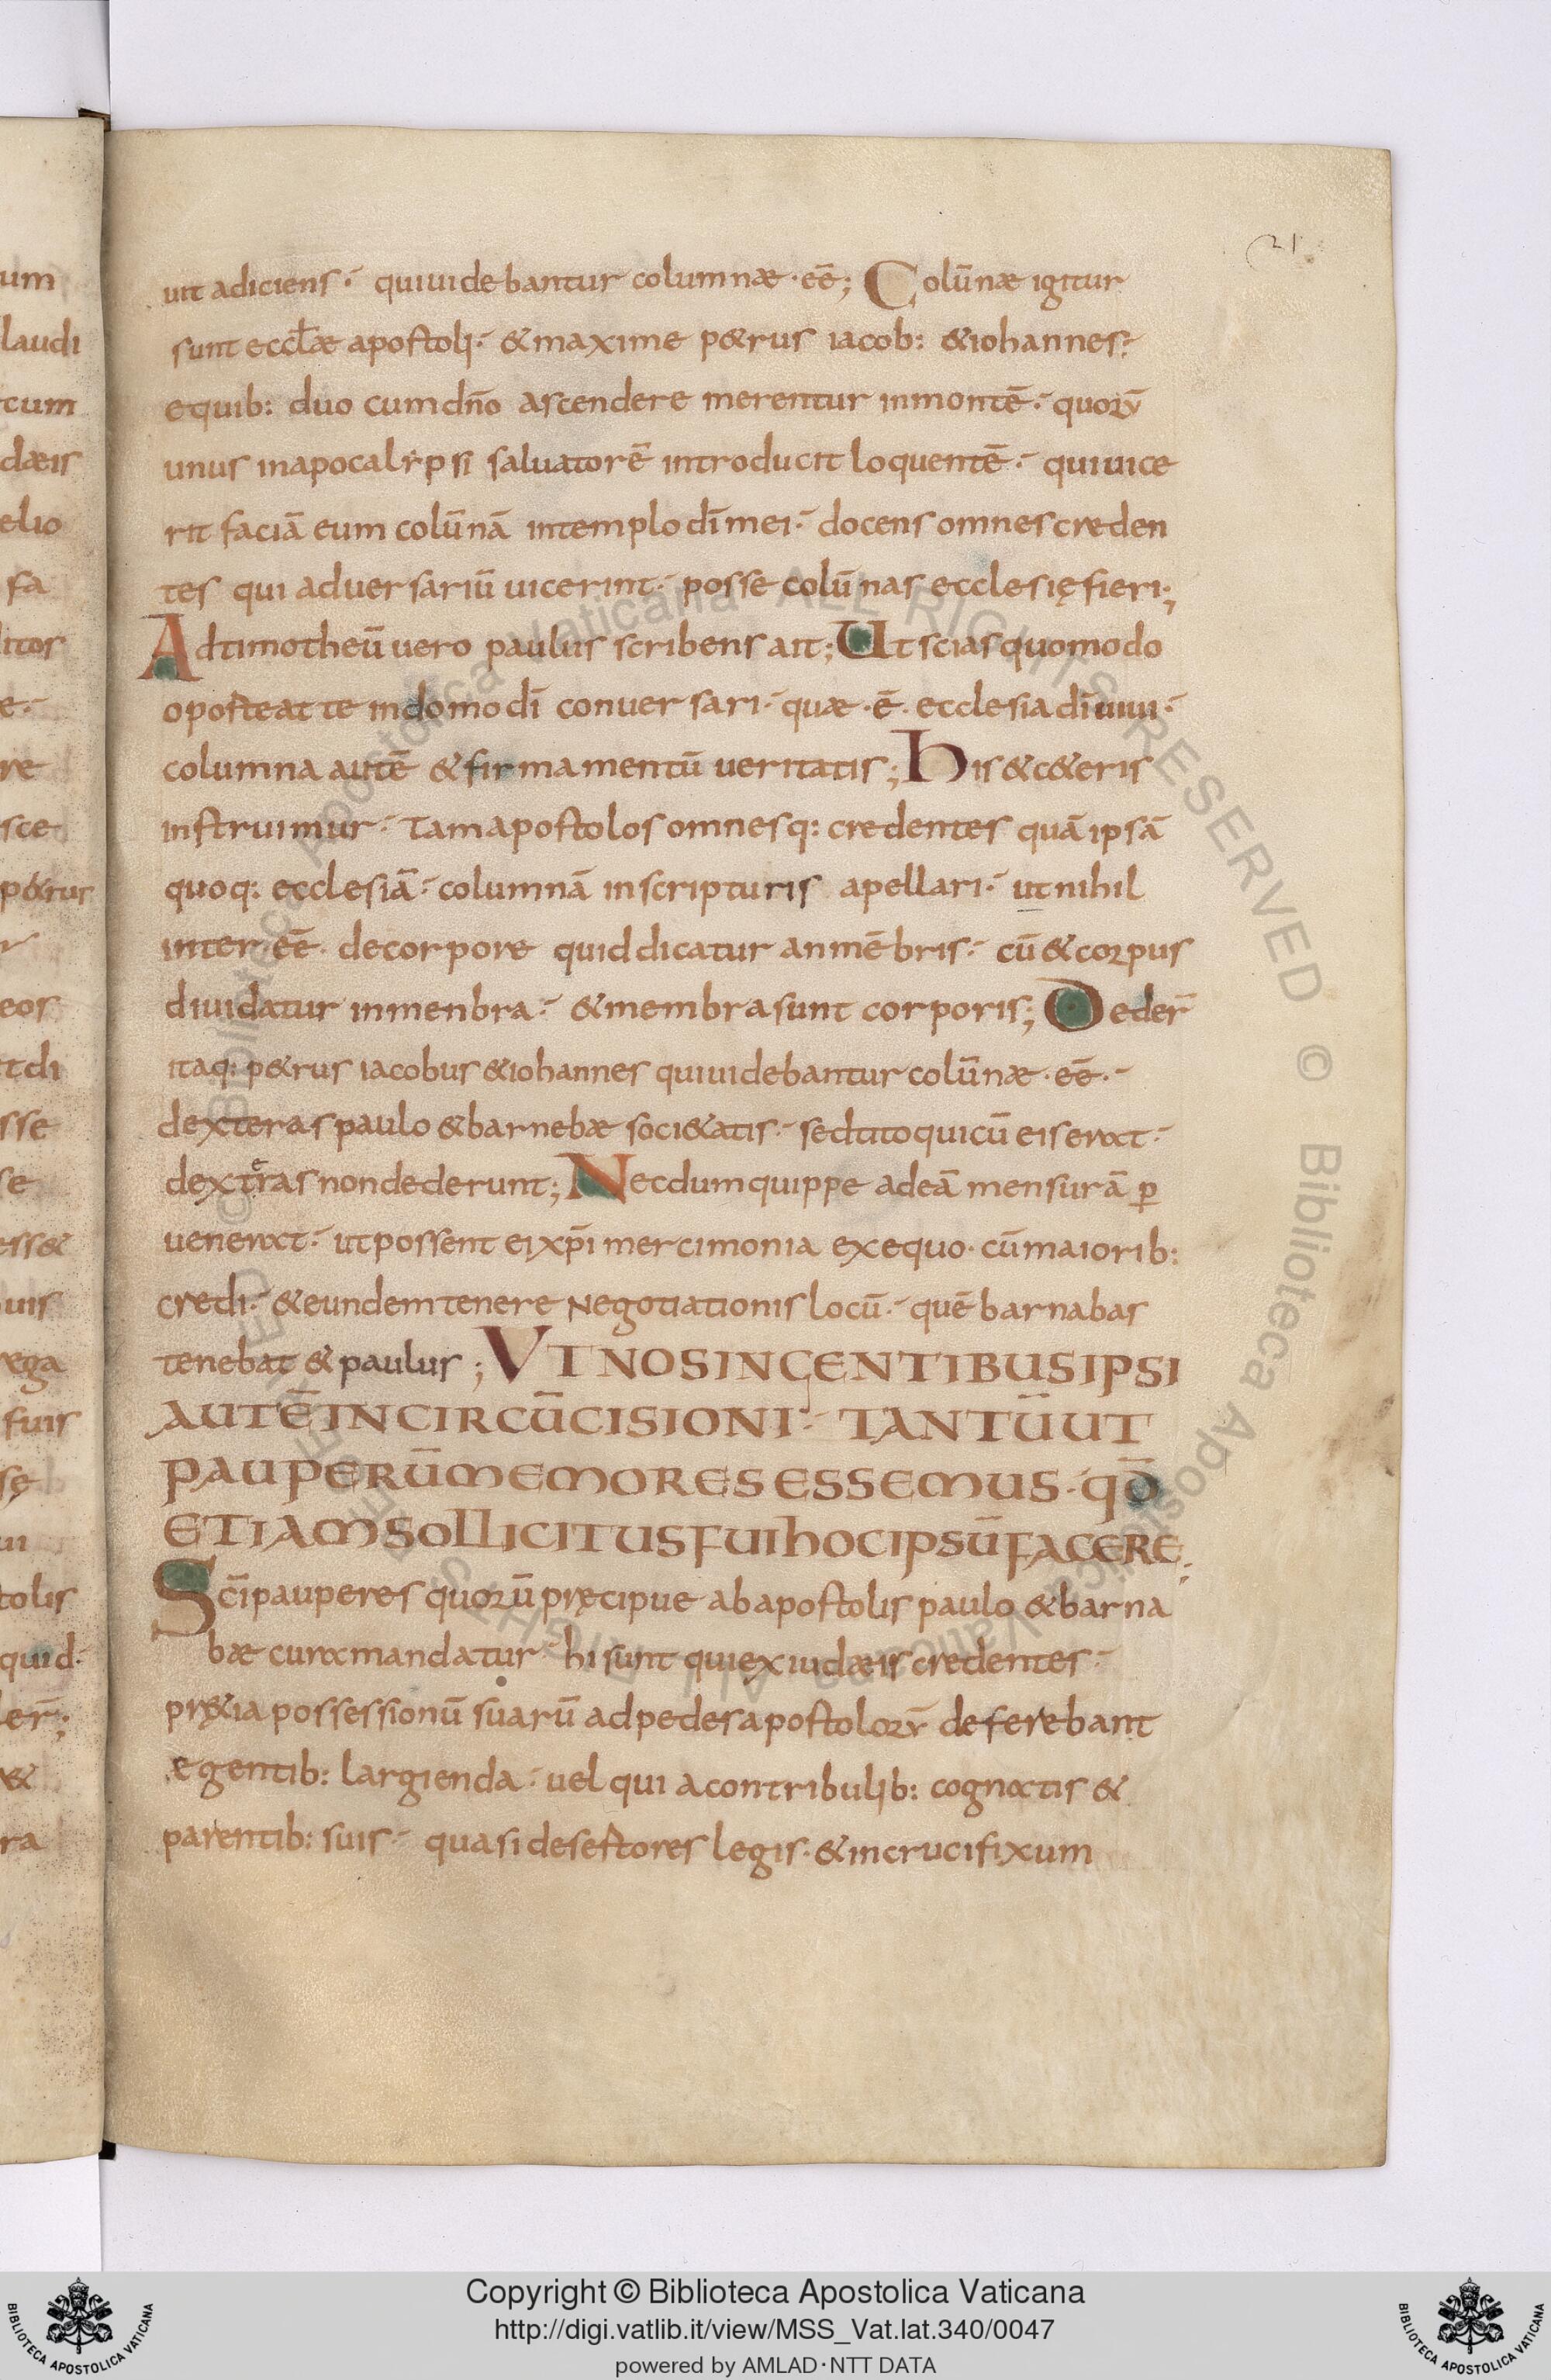 21
uit adiciens·̄ qui uidebantur columnæ · eē; Colūnæ igitur
sunt eccl̄æ apostoli·̄ & maxime p&rus iacob: & iohannes·̄
e quib: duo cum dn̄o ascendere merentur in montē·̄ quoꝝ
unus in apocalẏpsi saluatorē introducit loquentē·̄ qui uice
rit faciā eum colūnā in templo dī mei·̄ docens omnes creden
tes qui aduersariū uicerint·̄ posse colūnas ecclesię fieri;
Ad timotheū uero paulus scribens ait; Ut scias quomodo
oposteat te in domo dī conuersari·̄ quæ · ē · ecclesia dī uiui·̄
columna autē & firmamentū ueritatis; His & c&eris
instruimur·̄ Tam apostolos omnesq: credentes quā ipsā
quoq: ecclesiā·̄ columnā in scripturis apellari·̄ ut nihil
inter eē · de corpore quid dicatur an mēbris·̄ cū & corpus
diuidatur in menbra·̄ & membra sunt corporis; Deder̄
itaq: p&rus iacobus & iohannes qui uidebantur colūnæ · eē·̄
dexteras paulo & barnebæ soci&atis·̄ sed tito qui cū eis erat·̄
dexteras non dederunt; Necdum quippe ad eā mensurā ꝑ
uenerat·̄ ut possent ei xp̄i mercimonia ex equo · cū maiorib:
credi·̄ & eundem tenere Negotiationis locū·̄ quē barnabas
tenebat & paulus; VT NOS IN GENTIBUS IPSI
AUTĒ IN CIRCŪCISIONI·̄ TANTŪ UT
PAUPERŪ MEMORES ESSEMUS · QD̄
ETIAM SOLLICITUS FUI HOC IPSŪ FACERE;
Sc̄i pauperes quorū pręcipue ab apostolis paulo & barna
bæ cura mandatur·̄ hi sunt qui ex iudæis credentes·̄
pr&̨ia possessionū suarū ad pedes apostoloꝝ deferebant
egentib: largienda·̄ uel qui a contribulib: cognatis &
parentib: suis·̄ quasi desestores legis · & in crucifixum
um
laudi
cum
dæis
elio
fa
litos
e·̄
re
sce
p&rus
r
eos
t di
sse
se
ess&
uis
rega
fuis
sę
ui
tolis
quid·
der̄;
&
ra
Copyright © Biblioteca Apostolica Vaticana
http://digi.vatlib.it/view/MSS_Vat.lat.340/0047
powered by AMLAD·NTT DATA
BIBLIOTECA APOSTOLICA VATICANA
BIBLIOTECA APOSTOLICA VATICANA
© Biblioteca Apostolica Vaticana ALL RIGHTS RESERVED © Biblioteca Apostolica Vaticana ALL RIGHTS RESERVED